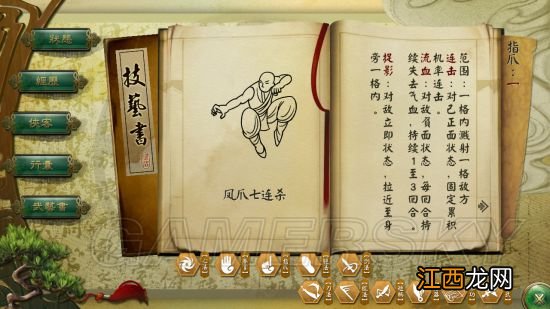 狀態
經歷
俠客
行囊
武藝書
技藝書
凤爪七连杀
指爪：一
范围：一格内溅射一格敌方
连击：对己正面状态，固定累积
机率连击。
流血：对敌负面状态，每回合持
续失去气血，持续1至3回合。
捉影：对敌立即状态，拉近至身
旁一格内。
GAMERSKY
江西龙网